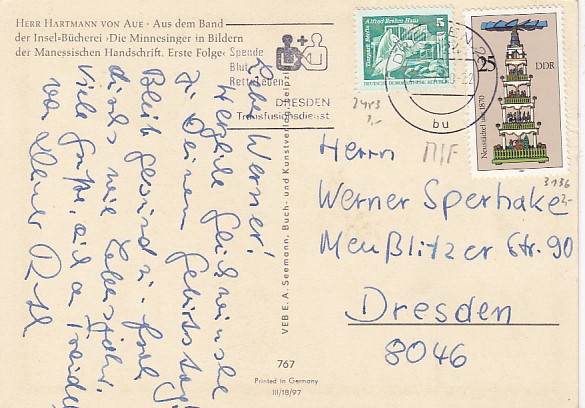 HERR HARTMANN VON AUE · Aus dem Band
der Insel-Bücherei ›Die Minnesinger in Bildern
der Manessischen Handschrift. Erste Folge‹
Spende
Blut
Rette Leben
DRESDEN
Transfusionsdienst
bu
Alfred Brehm Haus
5
25
DDR
Neustädtel um 1870
2483
3136
Lieber Werner!
Herzliche Glückwünsche
zu Deinem Geburtstag!
Bleib gesund u.
durchs neue Lebensjahr.
Viele Grüße, auch an
von
VEB E. A. Seemann, Buch- und Kunstverlag, Leipzig
MIF
Herrn
Werner Sperhake
Meußlitzer Str. 90
Dresden
8046
767
Printed in Germany
III/18/97